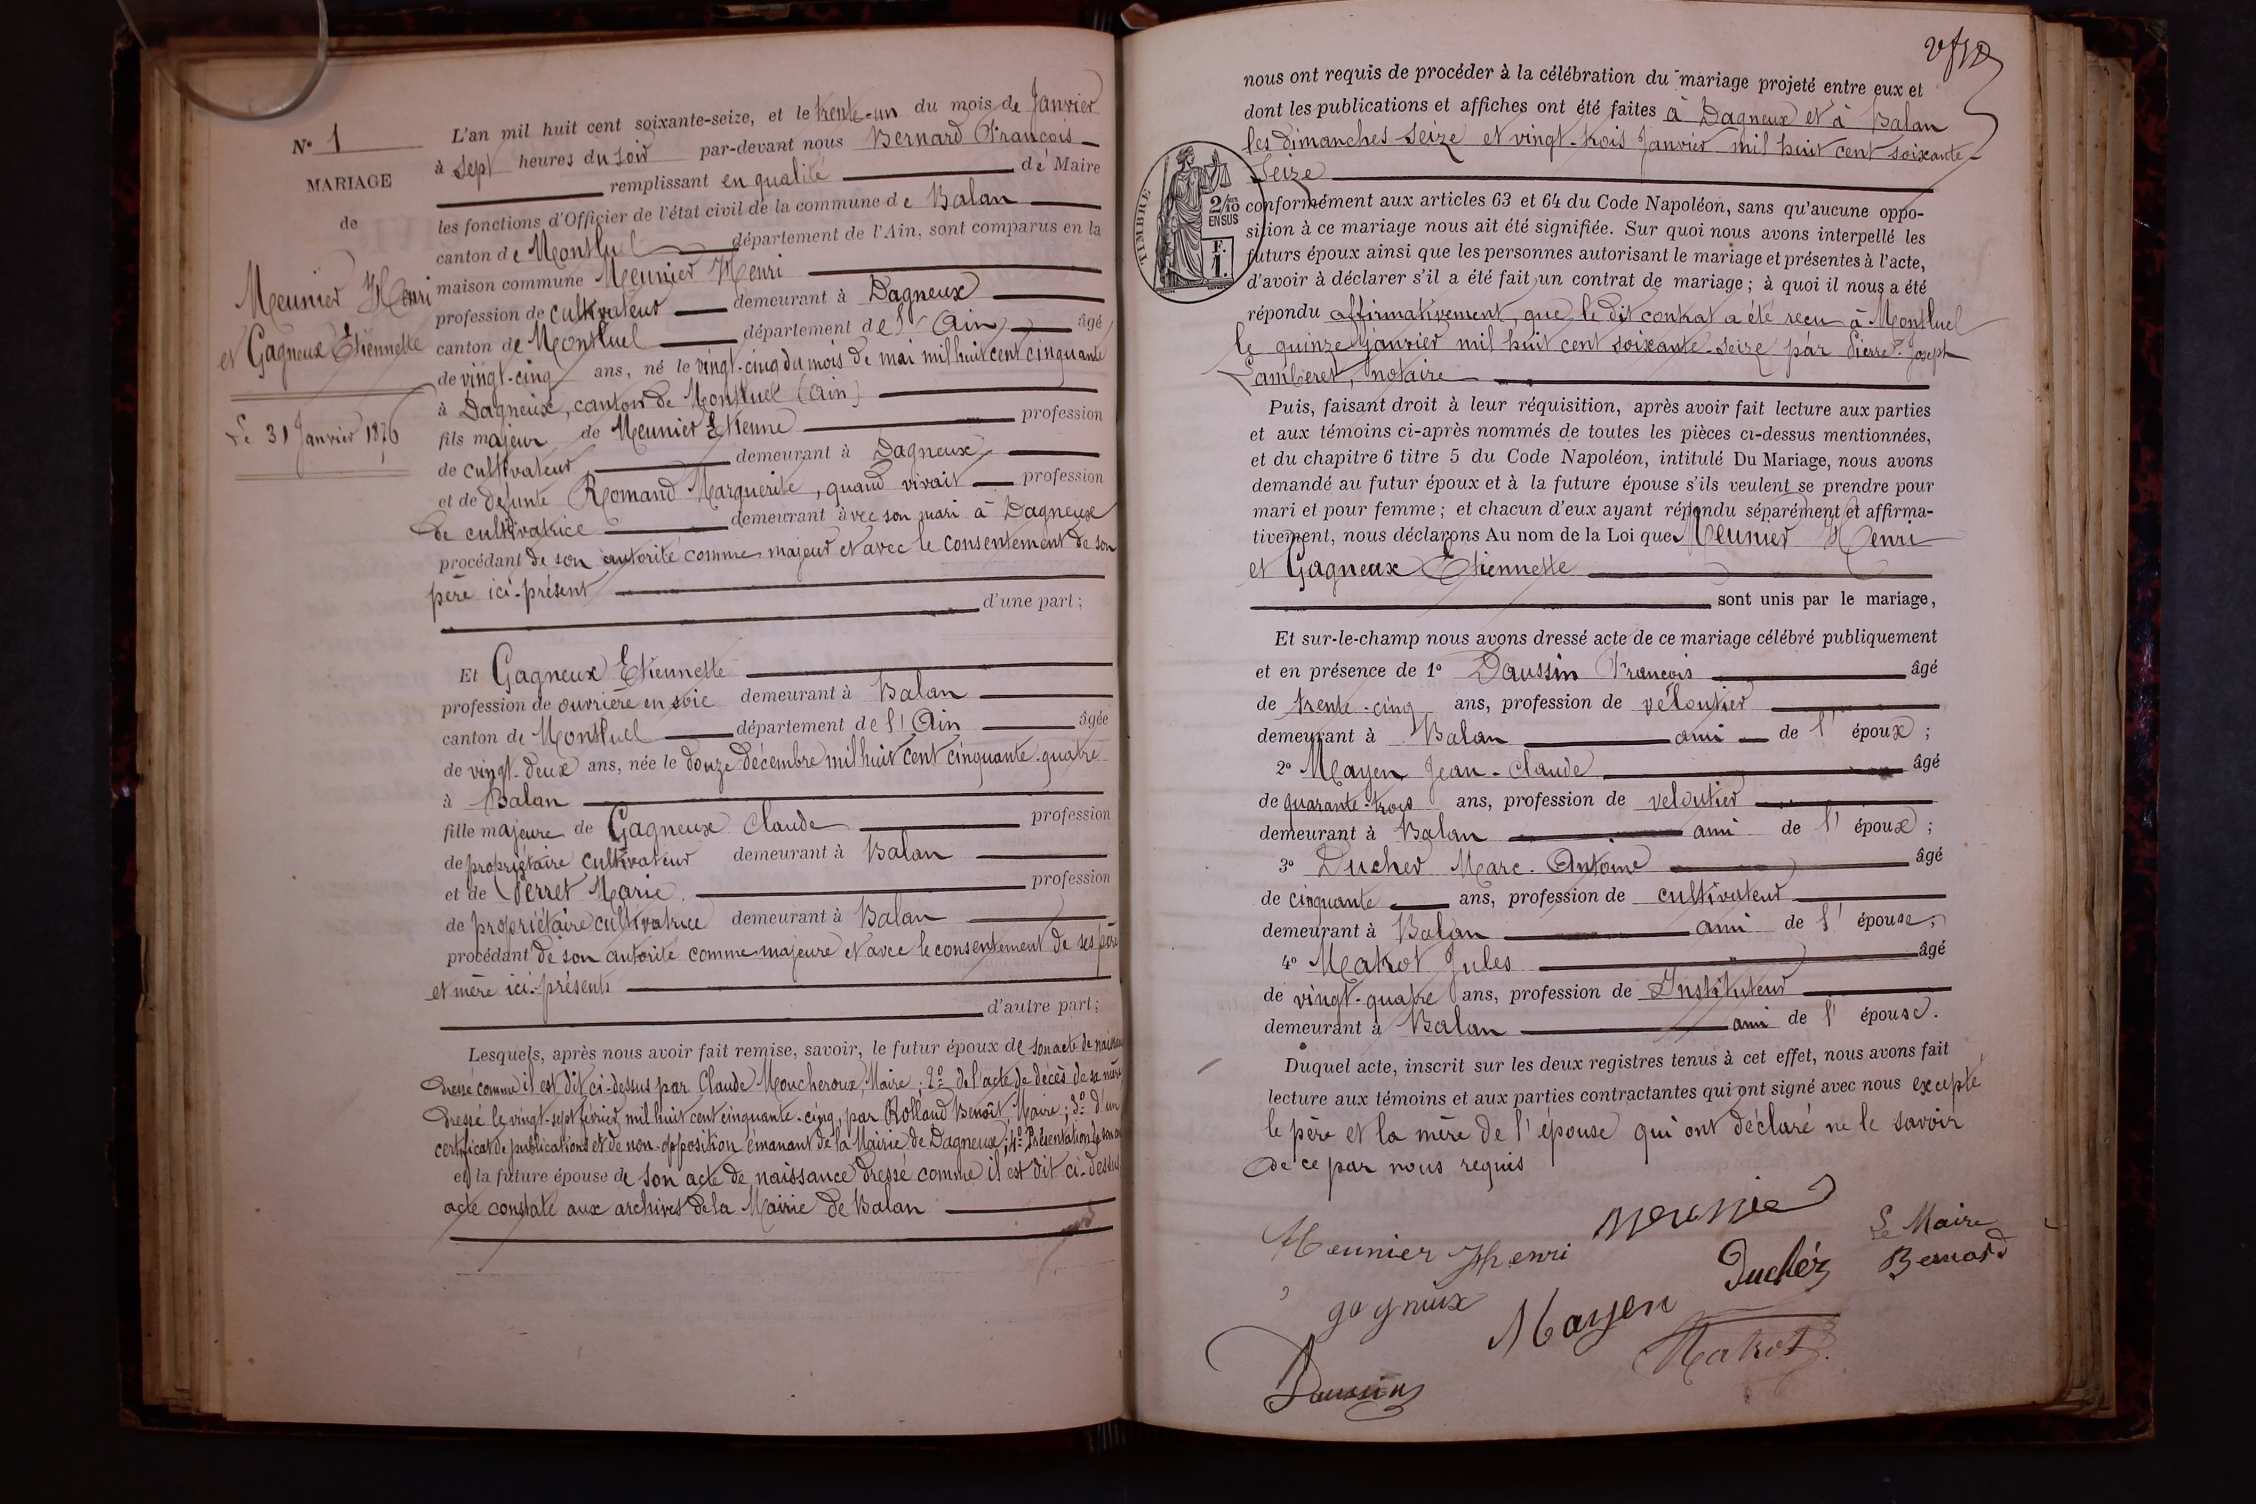 N° 1
MARIAGE
de
Meunier Henri
et Gagneux Etiennette
Le 31 Janvier 1876
L'an mil huit cent soixante-seize, et le trente-un du mois de Janvier
à sept heures du soir par-devant nous Bernard François
remplissant en qualité de Maire
les fonctions d'Officier de l'état civil de la commune de Balan
canton de Montluel département de l'Ain, sont comparus en la
maison commune Meunier Henri
profession de cultivateur demeurant à Dagneux
canton de Montluel département de l'Ain âgé
de vingt-cinq ans, né le vingt-cinq du mois de mai mil huit cent cinquante
à Dagneux, canton de Montluel (Ain)
fils majeur de Meunier Etienne profession
de cultivateur demeurant à Dagneux
et de defunte Romand Marguerite, quand vivait profession
de cultivatrice demeurant avec son mari à Dagneux
procédant de son autorité comme majeur et avec le consentement de son
père ici-présent
d'une part;
Et Gagneux Etiennette
profession de ouvrière en soie demeurant à Balan
canton de Montluel département de l'Ain âgée
de vingt-deux ans, née le douze décembre mil huit cent cinquante-quatre
à Balan
fille majeure de Gagneux Claude profession
de propriétaire cultivateur demeurant à Balan
et de Perret Marie profession
de propriétaire cultivatrice demeurant à Balan
procédant de son autorité comme majeure et avec le consentement de ses père
et mère ici-présents
d'autre part;
Lesquels, après nous avoir fait remise, savoir, le futur époux de son acte de naissance
dressé comme il est dit ci-dessus par Claude Moucheroux, Maire; 2° de l'acte de décès de sa mère
dressé le vingt-sept février mil huit cent cinquante-cinq, par Rolland Benoît, Maire; 3° d'un
certificat de publications et de non-opposition émanant de la Mairie de Dagneux; 4° Présentation de son
et la future épouse de son acte de naissance dressé comme il est dit ci-dessus
acte constaté aux archives de la Mairie de Balan
nous ont requis de procéder à la célébration du mariage projeté entre eux et
dont les publications et affiches ont été faites à Dagneux et à Balan
les dimanches seize et vingt-trois Janvier mil huit cent soixante-
seize
TIMBRE
2/10
EN SUS
F.
1.
conformément aux articles 63 et 64 du Code Napoléon, sans qu'aucune oppo-
sition à ce mariage nous ait été signifiée. Sur quoi nous avons interpellé les
futurs époux ainsi que les personnes autorisant le mariage et présentes à l'acte,
d'avoir à déclarer s'il a été fait un contrat de mariage; à quoi il nous a été
répondu affirmativement, que le dit contrat a été reçu à Montluel
le quinze janvier mil huit cent soixante-seize par Pierre Joseph
Lamberet, notaire
Puis, faisant droit à leur réquisition, après avoir fait lecture aux parties
et aux témoins ci-après nommés de toutes les pièces ci-dessus mentionnées,
et du chapitre 6 titre 5 du Code Napoléon, intitulé Du Mariage, nous avons
demandé au futur époux et à la future épouse s'ils veulent se prendre pour
mari et pour femme; et chacun d'eux ayant répondu séparément et affirma-
tivement, nous déclarons Au nom de la Loi que Meunier Henri
et Gagneux Etiennette
sont unis par le mariage,
Et sur-le-champ nous avons dressé acte de ce mariage célébré publiquement
et en présence de 1° Daussin François âgé
de trente-cinq ans, profession de véloutier
demeurant à Balan ami de l'époux;
2° Mayen Jean-Claude âgé
de quarante-trois ans, profession de veloutier
demeurant à Balan ami de l'époux;
3° Ducher Marc-Antoine âgé
de cinquante ans, profession de cultivateur
demeurant à Balan ami de l'épouse;
4° Matrot Jules âgé
de vingt-quatre ans, profession de Instituteur
demeurant à Balan ami de l'épouse.
Duquel acte, inscrit sur les deux registres tenus à cet effet, nous avons fait
lecture aux témoins et aux parties contractantes qui ont signé avec nous excepté
le père et la mère de l'épouse qui ont déclaré ne le savoir
de ce par nous requis
Meunier Henri
Meunier
Le Maire
Bernard
Duchér
gagneux
Mayen
Matrot
Daussin